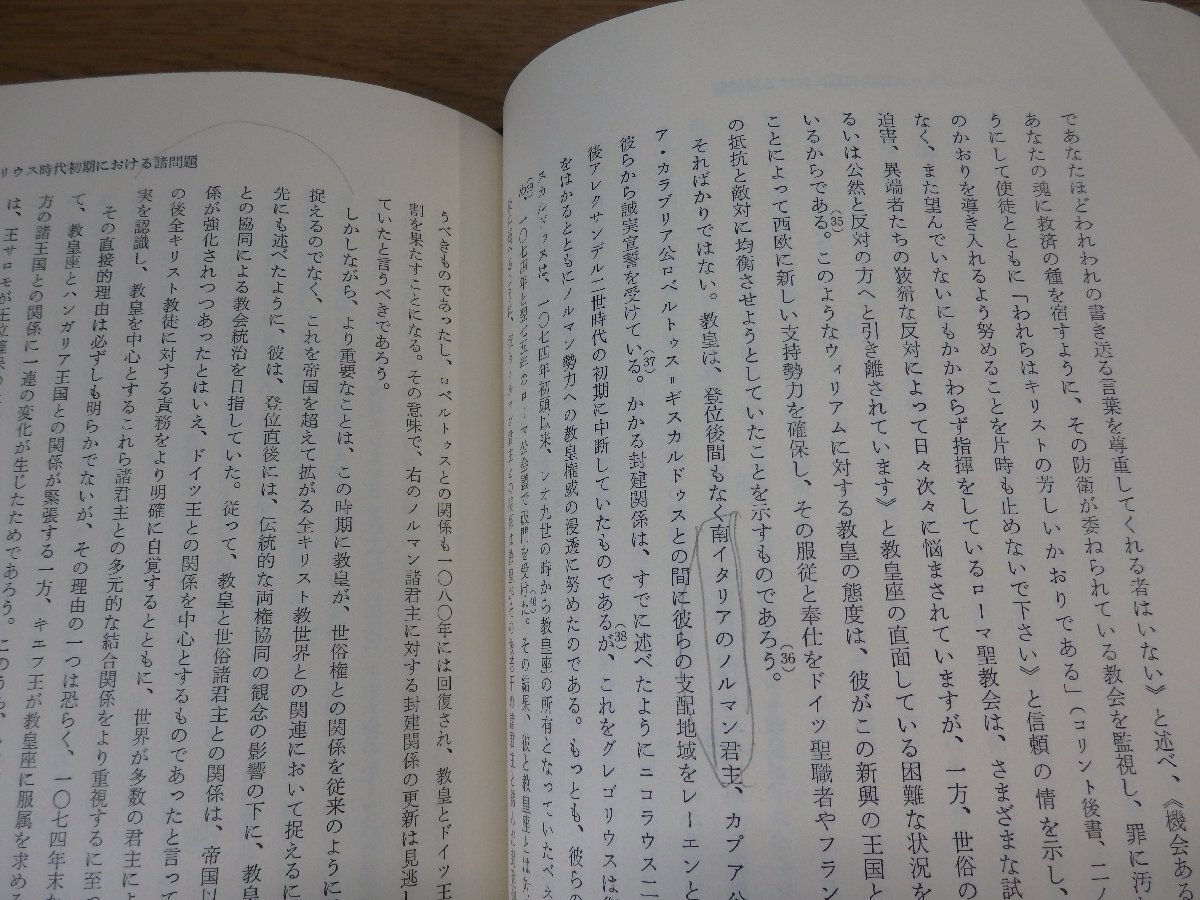 であなたほどわれわれの書き送る言葉を尊重してくれる者はいない》と述べ、《機会ある
あなたの魂に救済の種を宿すように、その防衛が委ねられている教会を監視し、罪に汚
うにして使徒とともに「われらはキリストの芳しいかおりである」(コリント後書、二ノ
のかおりを導き入れるよう努めることを片時も止めないで下さい》と信頼の情を示し、
なく、また望んでいないにもかかわらず指揮をしているローマ聖教会は、さまざまな試
迫害、異端者たちの狡猾な反対によって日々次々に悩まされていますが、一方、世俗の
るいは公然と反対の方へと引き離されています》と教皇座の直面している困難な状況を
いるからである。(35)このようなウィリアムに対する教皇の態度は、彼がこの新興の王国と
ことによって西欧に新しい支持勢力を確保し、その服従と奉仕をドイツ聖職者やフラン
の抵抗と敵対に均衡させようとしていたことを示すものであろう。(36)
そればかりではない。教皇は、登位後間もなく南イタリアのノルマン君主、カプア公
ア・カラブリア公ロベルトゥス=ギスカルドゥスとの間に彼らの支配地域をレーエンと
彼らから誠実宣誓を受けている。(37)かかる封建関係は、すでに述べたようにニコラウス二
後アレクサンデル二世時代の初期に中断していたものであるが、(38)これをグレゴリウスは
をはかるとともにノルマン勢力への教皇権威の浸透に努めたのである。もっとも、彼らの
スカルドゥスは、一〇七四年初頭以来、レオ九世の時から教皇座の所有となっていたベネ
リウス時代初期における諸問題
うべきものであったし、ロベルトゥスとの関係も一〇八〇年には回復され、教皇とドイツ王
割を果たすことになる。その意味で、右のノルマン諸君主に対する封建関係の更新は見逃し
ていたと言うべきであろう。
しかしながら、より重要なことは、この時期に教皇が、世俗権との関係を従来のように
捉えるのでなく、これを帝国を超えて拡がる全キリスト教世界との関連において捉えるに
先にも述べたように、彼は、登位直後には、伝統的な両権協同の観念の影響の下に、教皇
との協同による教会統治を目指していた。従って、教皇と世俗諸君主との関係は、帝国以
係が強化されつつあったとはいえ、ドイツ王との関係を中心とするものであったと言って
の後全キリスト教徒に対する責務をより明確に自覚するとともに、世界が多数の君主によ
実を認識し、教皇を中心とするこれら諸君主との多元的な結合関係をより重視するに至っ
その直接的理由は必ずしも明らかでないが、その理由の一つは恐らく、一〇七四年末か
て、教皇座とハンガリア王国との関係が緊張する一方、キエフ王が教皇座に服属を求め
方の諸王国との関係に一連の変化が生じたためであろう。
は、王サロモが王位